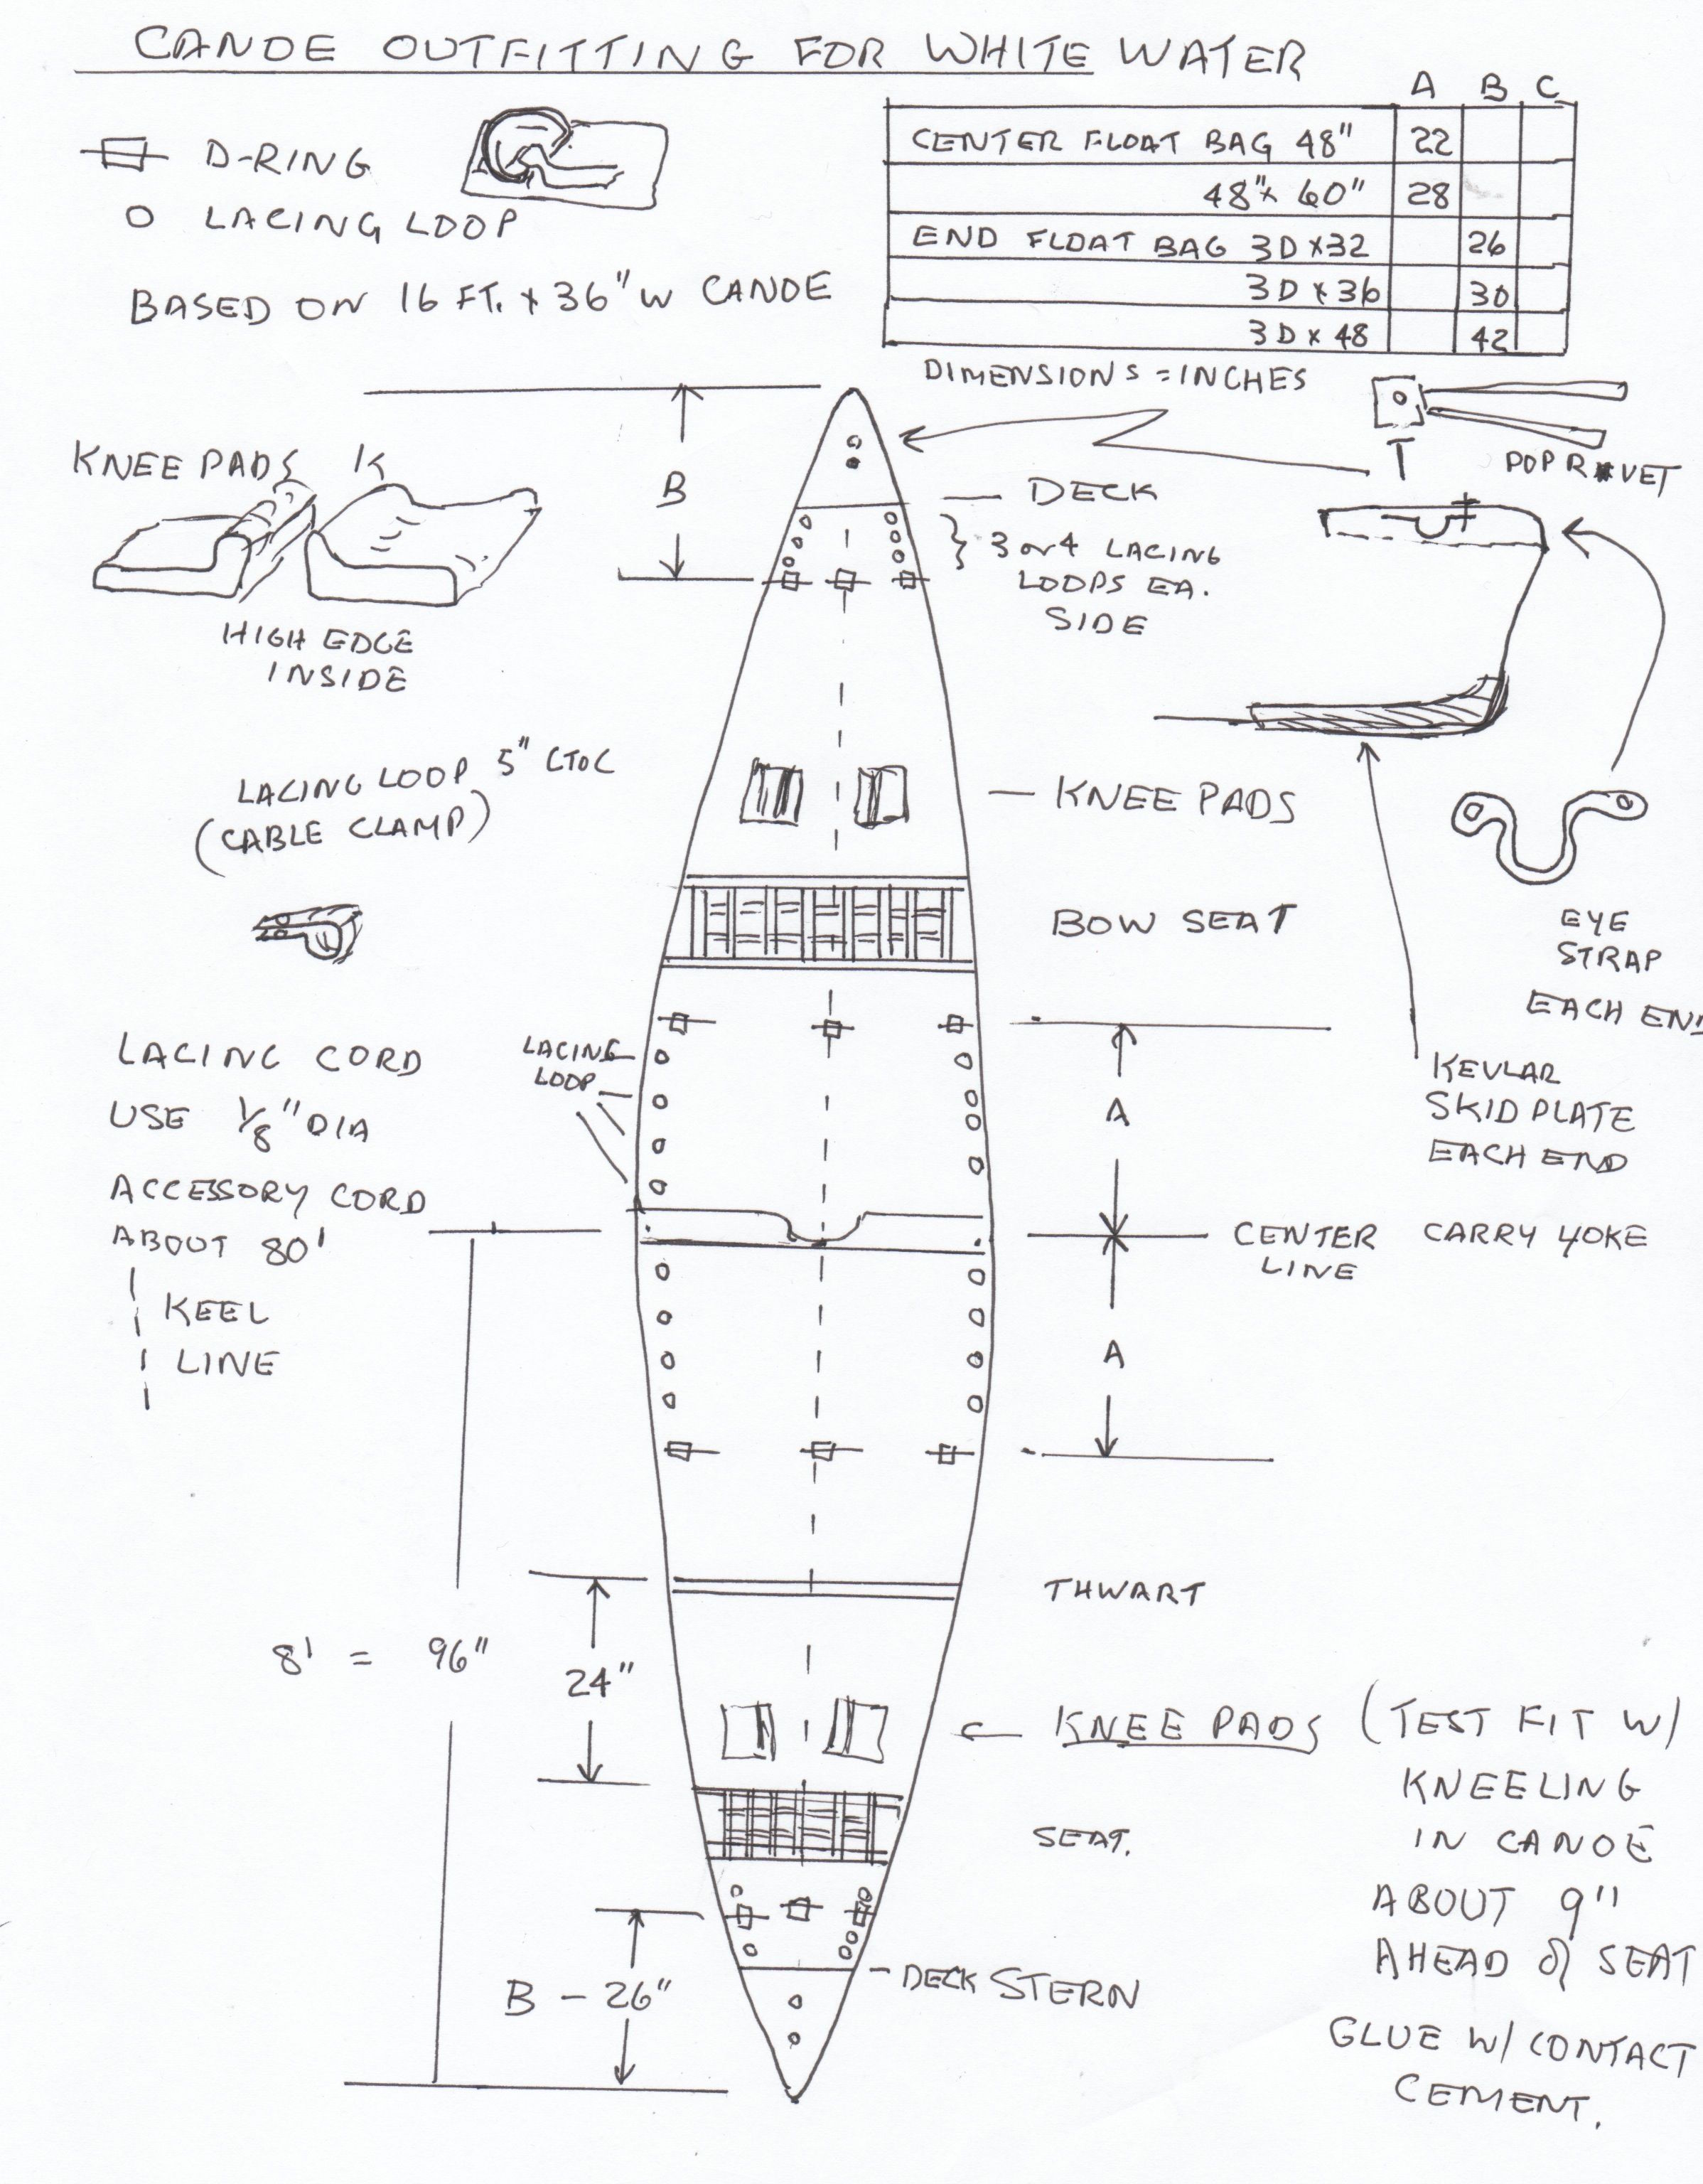 CANOE OUTFITTING FOR WHITE WATER
A B C
D-RING
CENTER FLOAT BAG 48" 22
48" x 60" 28
O LACING LOOP
END FLOAT BAG 3D x 32 26
3D x 36 30
3D x 48 42
BASED ON 16 FT. x 36" W CANOE
DIMENSIONS = INCHES
POP RIVET
KNEE PADS
B
DECK
3 or 4 LACING
LOOPS EA.
SIDE
HIGH EDGE
INSIDE
LACING LOOP 5" CTOC
(CABLE CLAMP)
KNEE PADS
BOW SEAT
EYE
STRAP
EACH END
LACING CORD
USE 1/8" DIA
ACCESSORY CORD
ABOUT 80'
LACING
LOOP
A
KEVLAR
SKID PLATE
EACH END
CENTER
LINE
CARRY YOKE
KEEL
LINE
A
THWART
8' = 96"
24"
KNEE PADS (TEST FIT W/
KNEELING
IN CANOE
ABOUT 9"
AHEAD of SEAT
GLUE W/ CONTACT
CEMENT.
SEAT.
B - 26"
DECK STERN